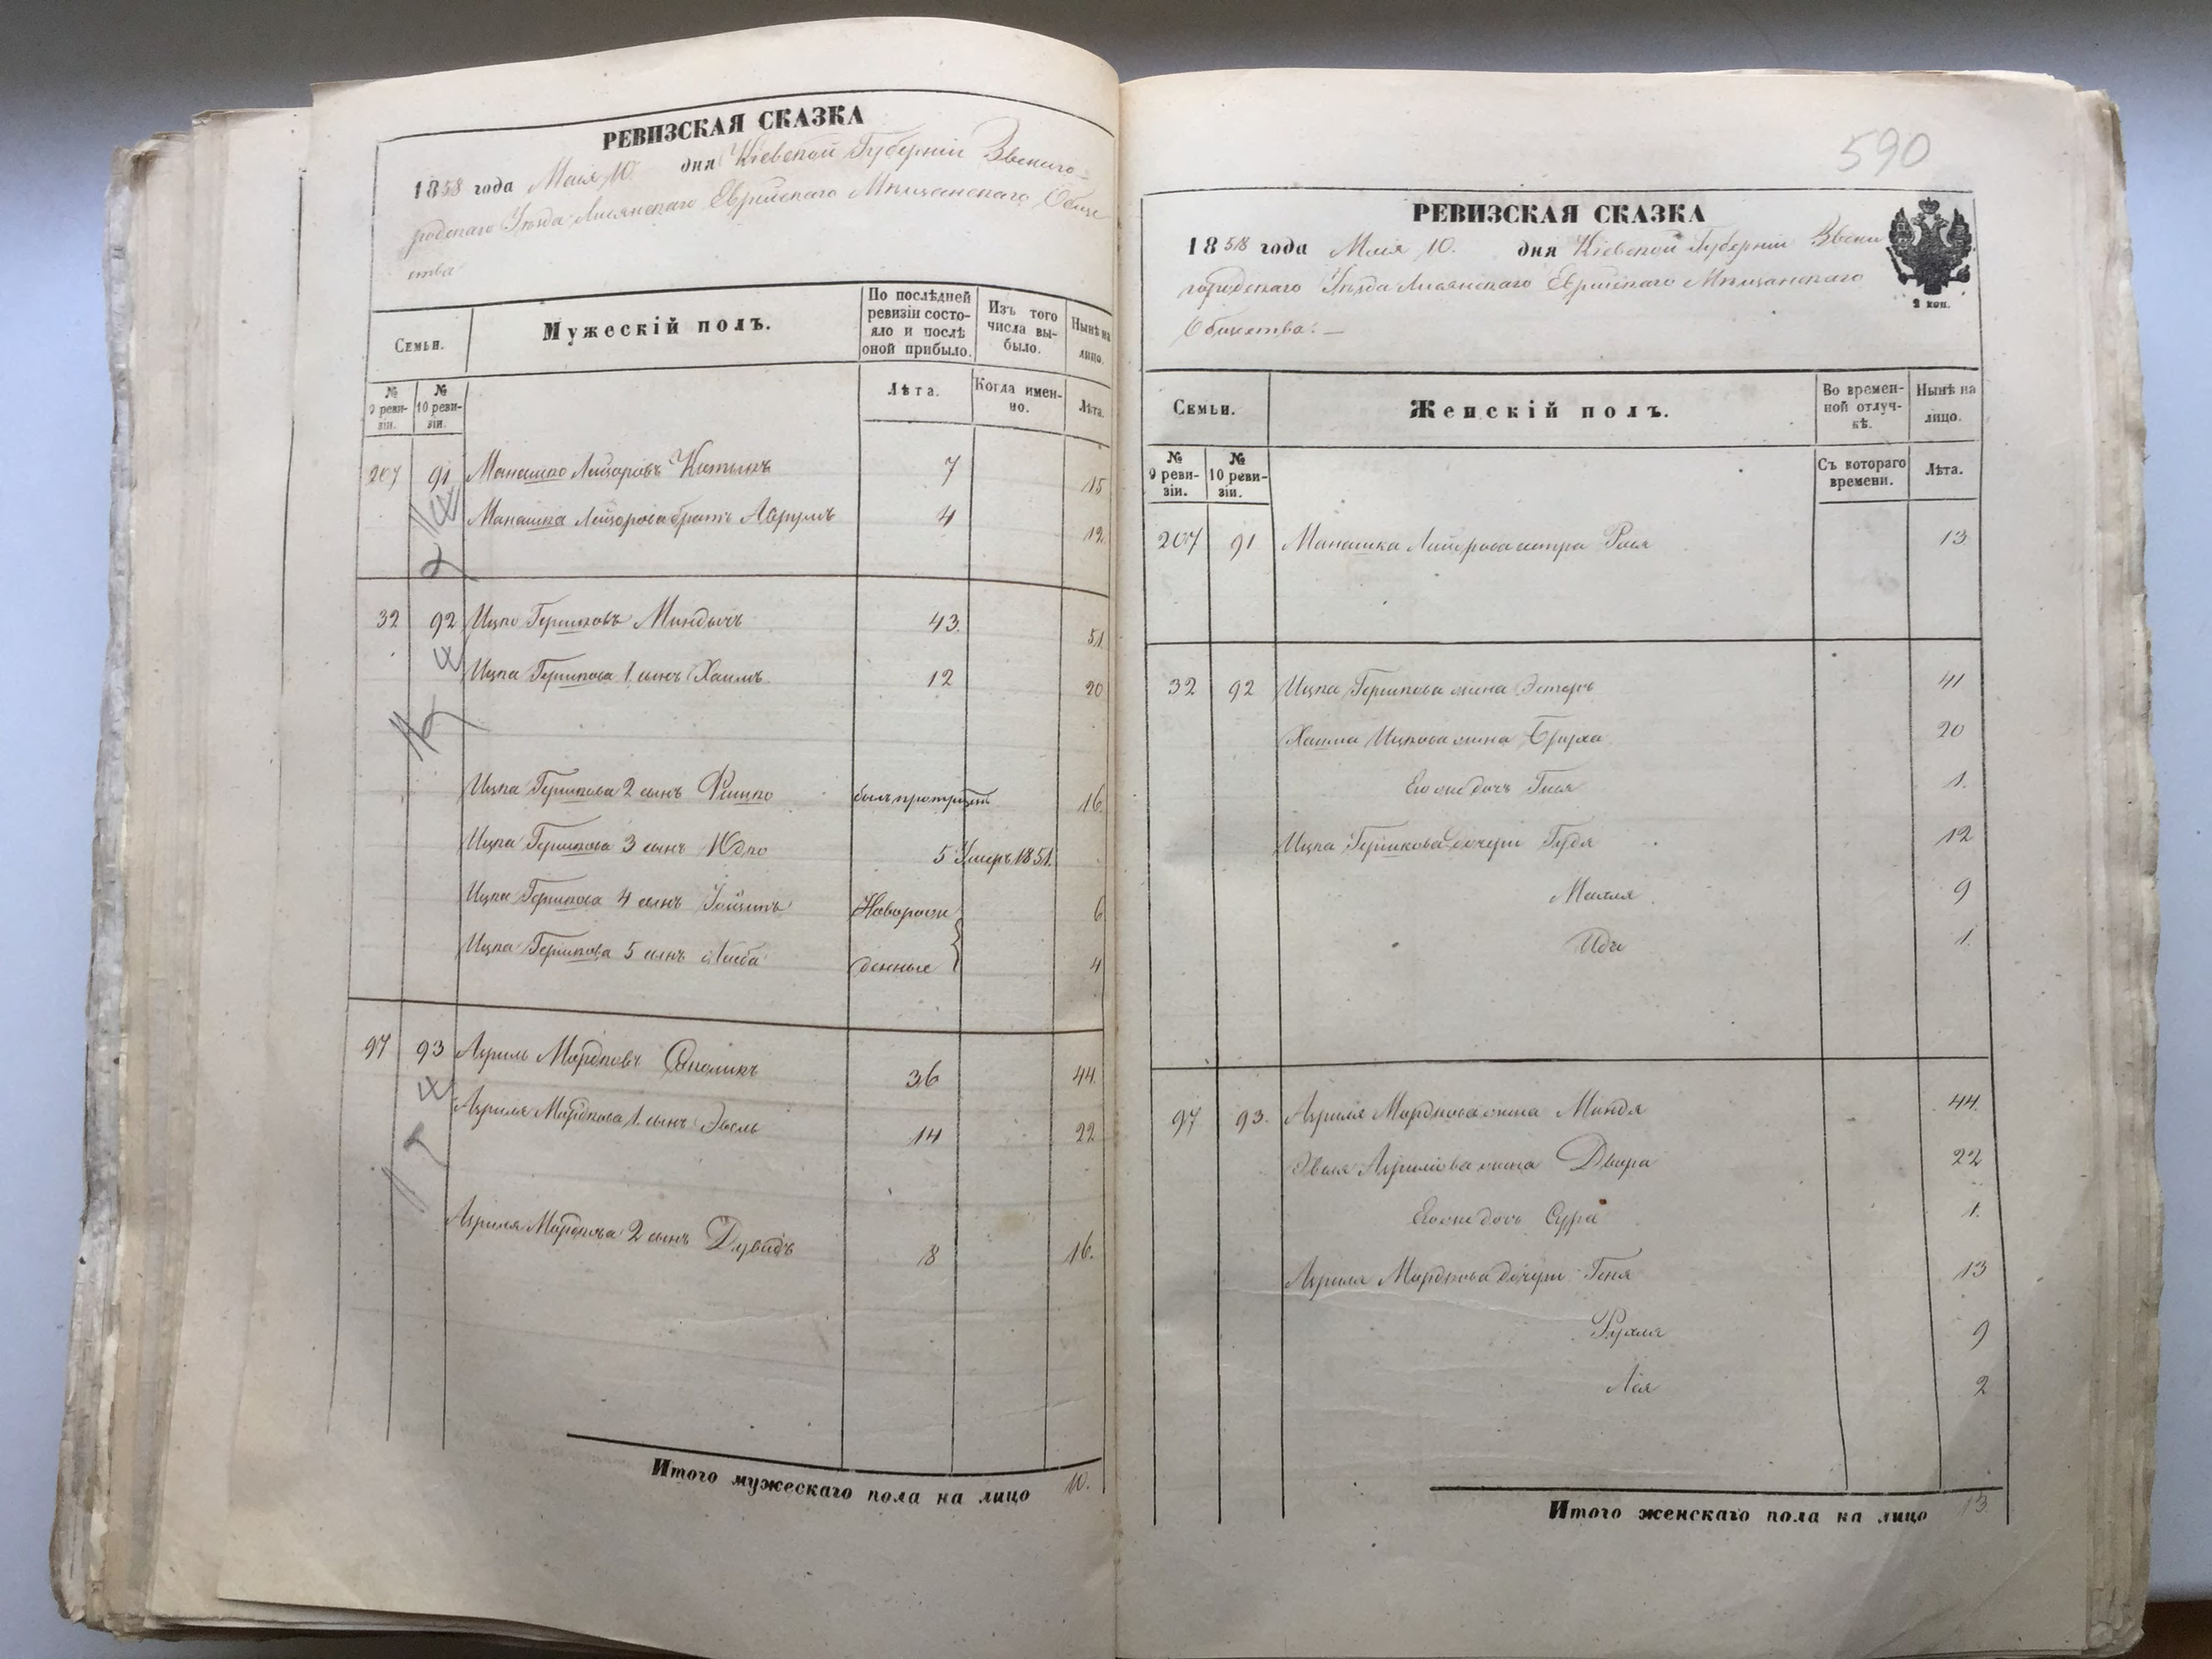 РЕВИЗСКАЯ СКАЗКА
1858 года Маія 10. дня Кіевской Губерніи Звениго-
родскаго Уѣзда Лисянскаго Еврейскаго Мѣщанскаго Обще
ства
Семьи.
Мужескій полъ.
По послѣдней ревизіи состо-яло и послѣ оной прибыло.
Изъ того числа вы-было.
Нынѣ на лицо.
№ 9 реви-зіи.
№ 10 реви-зіи.
Лѣта.
Когда имен-но.
Лѣта.
207 91 Манашко Лейзоровъ 7 15
Манашка Лейзорова братъ Аврумъ 4 12.
32 92 Ицко Гершковъ 43. 51
Ицка Гершкова 1 сынъ Хаимъ 12 20
Ицка Гершкова 2 сынъ Фишко былъ 16.
Ицка Гершкова 3 сынъ Юдко 5 Умеръ 1851.
Ицка Гершкова 4 сынъ Новорож 6
Ицка Гершкова 5 сынъ Лейба денные 4
97 93 Азриль Мордковъ 36 44.
Азриля Мордкова 1. сынъ Эвель 14 22
Азриля Мордкова 2 сынъ Дувидъ 8 16.
Итого мужескаго пола на лицо 10.
590
РЕВИЗСКАЯ СКАЗКА
1858 года Маія 10. дня Кіевской Губерніи Звени
городскаго Уѣзда Лисянскаго Еврейскаго Мѣщанскаго
Общества. —
2 коп.
Семьи.
Женскій полъ.
Во времен-ной отлуч-кѣ.
Нынѣ на лицо.
№ 9 реви-зіи.
№ 10 реви-зіи.
Съ котораго времени.
Лѣта.
207 91 Манашка Лейзорова сестра Рася 13
32 92 Ицка Гершкова жена Эстеръ 41
Хаима Ицкова жена Бруха 20
Его же дочь Гися 1.
Ицка Гершкова дочери Гудя 12
9
Идя 1.
97 93. Азриля Мордкова жена Миндя 44.
Эвеля Азрилева жена Двора 22
Его же дочь Сура 1.
Азриля Мордкова дочери Геня 13
Рухля 9
Лея 2
Итого женскаго пола на лицо 13